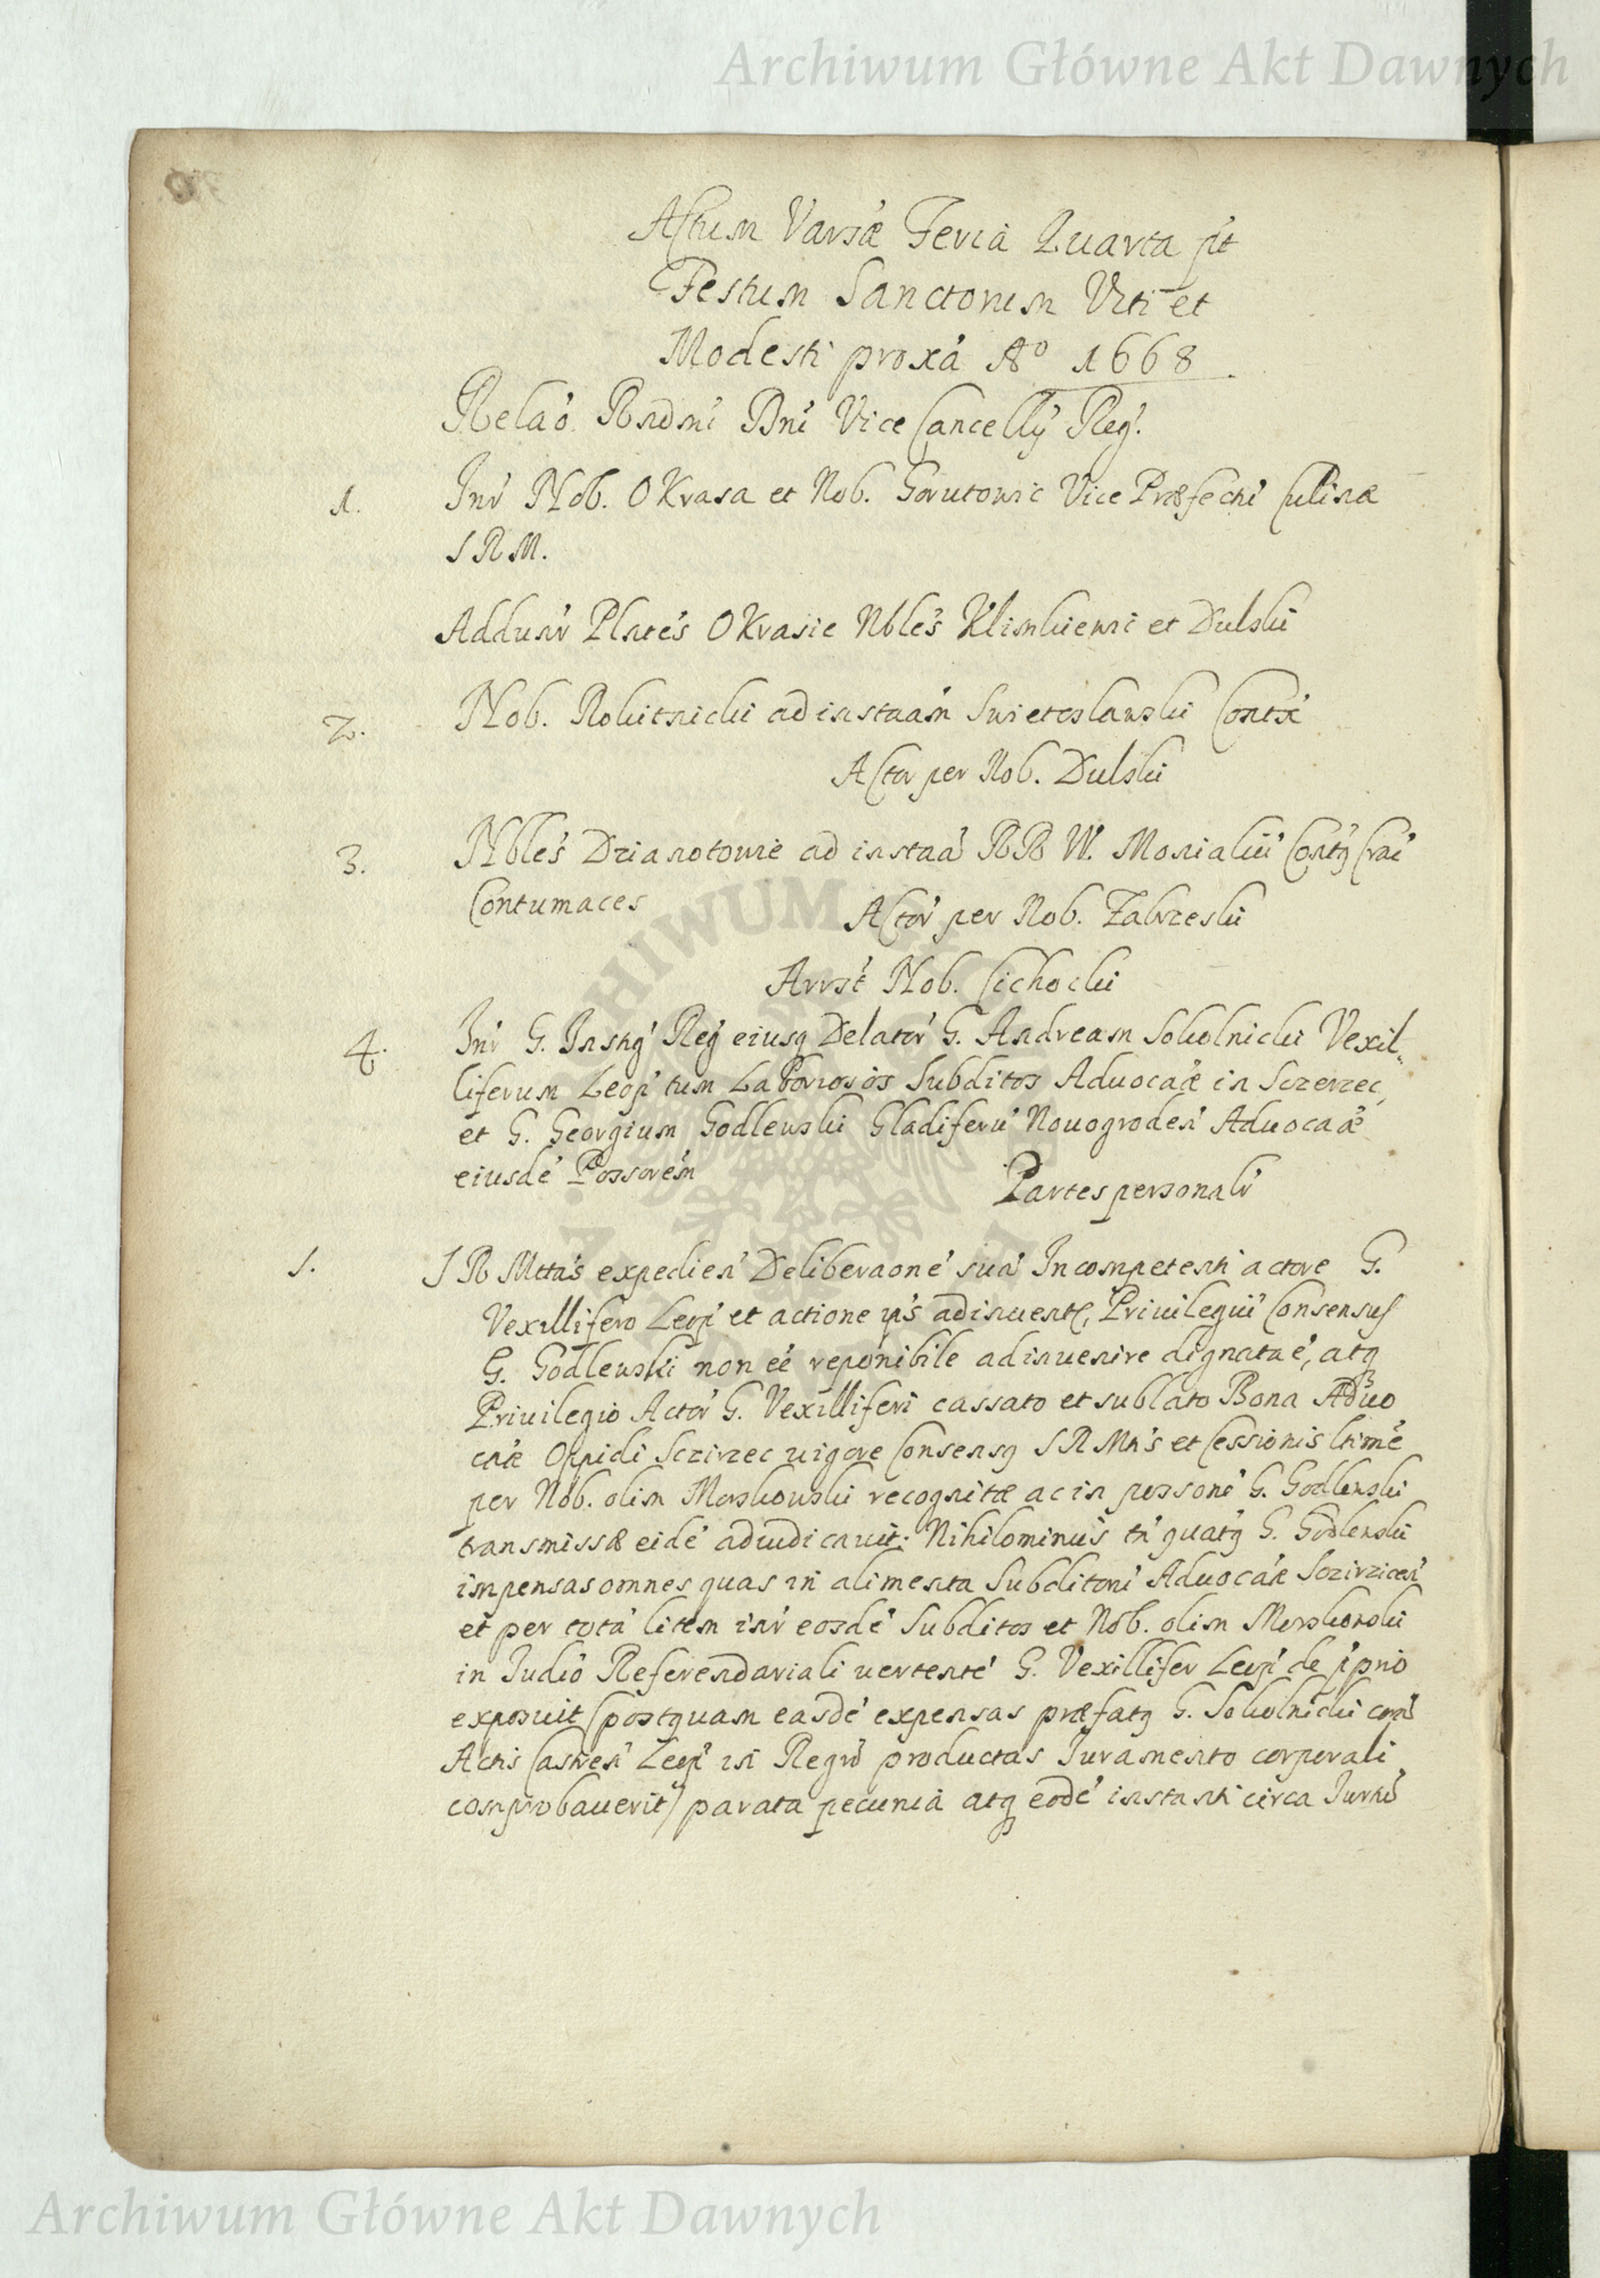 Archiwum Główne Akt Dawnych
Actum Varsæ Feria Quarta pt
Festum Sanctorum Viti et
Modesti proxá Aº 1668
Relaó Rndmi Dni Vice Cancellÿ Reg.
1. Inr Nob. Okrasa et Nob. Gorutowic Vice Præfecti Culinæ
S R M.
Addunr Plntes Okrasie Nbles Klimkiewic et Dulski
2. Nob. Rokitnicki ad instaam Swietoslawski Contx
Actor per Nob. Dulski
3. Nbles Dzianotowie ad instaá RR W. Monialiú Contq
Contumaces Actor per Nob. Zabrzeski
Arrst Nob. Cichocki
4. Inr G. Instig Reg eiusq Delator G. Andream Sokolnicki Vexil-
liferum Leop tum Laboriosos Subditos Aduocaæ in Sczerzec,
et G. Georgium Godlewski Gladiferú Nouogroden Aduocaæ
eiusdé Possorem Partes personalr
5. S R Mttas expedien Deliberaoné suá Incompetenti actore G.
Vexillifero Leop et actione ips adinuentq, Priuilegiú Consensus
G. Godlewski non eé reponibile adinuenire dignata é, atq
Priuilegio Actor G. Vexilliferi cassato et sublato Bona Aduo
caæ Oppidi Sczirzec uigore Consensq S R Mtis et Cessionis ltimé
per Nob. olim Morskowski recognitæ ac in personé G. Godlewski
transmissæ eidé adiudicauit: Nihilominus tn quatq G. Godlewski
impensas omnes quas in alimenta Subditorú Aduocaæ Sczirzicen
et per totá litem inr eosdé Subditos et Nob. olim Morskowski
in Judió Referendariali uertenté G. Vexillifer Leop de prio
exposuit (postquam easdé expensas præfatq G. Sokolnicki corá
Actis Castren Leop in Regró productas Juramento corporali
comprobauerit) parata pecuniá atq eodé instanti circa Jurtú
Archiwum Główne Akt Dawnych